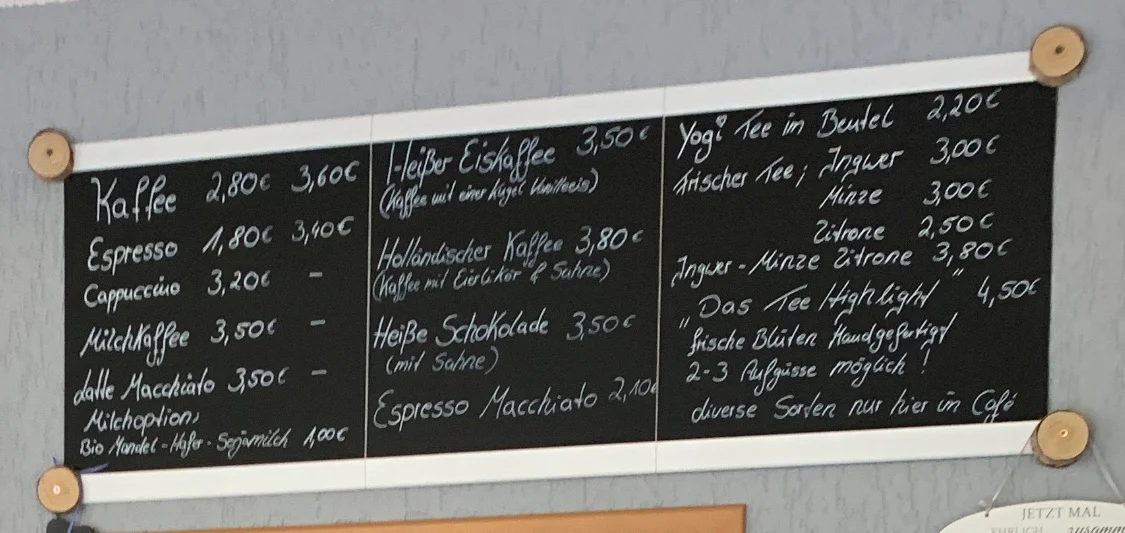 Kaffee 2,80€ 3,60€
Espresso 1,80€ 3,40€
Cappuccino 3,20€ -
Milchkaffee 3,50€ -
Latte Macchiato 3,50€ -
Milchoption:
Bio Mandel - Hafer - Sojamilch 1,00€
Heißer Eiskaffee 3,50€
(Kaffee mit einer Kugel Vanilleeis)
Holländischer Kaffee 3,80€
(Kaffee mit Eierlikör & Sahne)
Heiße Schokolade 3,50€
(mit Sahne)
Espresso Macchiato 2,10€
Yogi Tee im Beutel 2,20€
frischer Tee; Ingwer 3,00€
Minze 3,00€
Zitrone 2,50€
Ingwer - Minze Zitrone 3,80€
„Das Tee Highlight" 4,50€
frische Blüten Handgefertigt
2-3 Aufgüsse möglich!
diverse Sorten nur hier im Café
JETZT MAL
EHRLICH